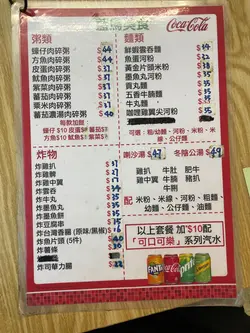 美食
Coca-Cola
粥類
蠔仔肉碎粥 $44
方魚肉碎粥 $44
皮蛋肉碎粥 $37
魷魚肉碎粥 $37
紫菜肉碎粥 $37
蕃茄肉碎粥 $37
粟米肉碎粥 $37
蕃茄濃湯肉碎粥 $40
每款加餸:
蠔仔 $10 皮蛋$8 蕃茄$8
方魚$10 魷魚$8 紫菜$8
麵類
鮮蝦雲吞麵
魚蛋河粉
黃金片頭米粉
墨魚丸河粉
貢丸麵
五香肉丁麵
牛丸麵
咖喱雞翼尖河粉
可選：粗/幼麵、河粉、米粉、米
炸物
炸雞扒
炸雞髀
炸雞中翼
炸雲吞
炸牛丸
炸墨魚丸
炸墨魚餅
炸豆腐串
炸台灣香腸 (原味/黑椒)
炸魚片頭 (5件)
炸薯條
炸司華力腸
喇沙湯 $47 冬蔭公湯 $47
雞扒 牛肚 肥牛
雞中翼 牛腩 豬扒
牛脷
配 米粉、米線、河粉、粗麵、
幼麵、公仔麵、油麵
以上套餐 加$10配
「可口可樂」系列汽水